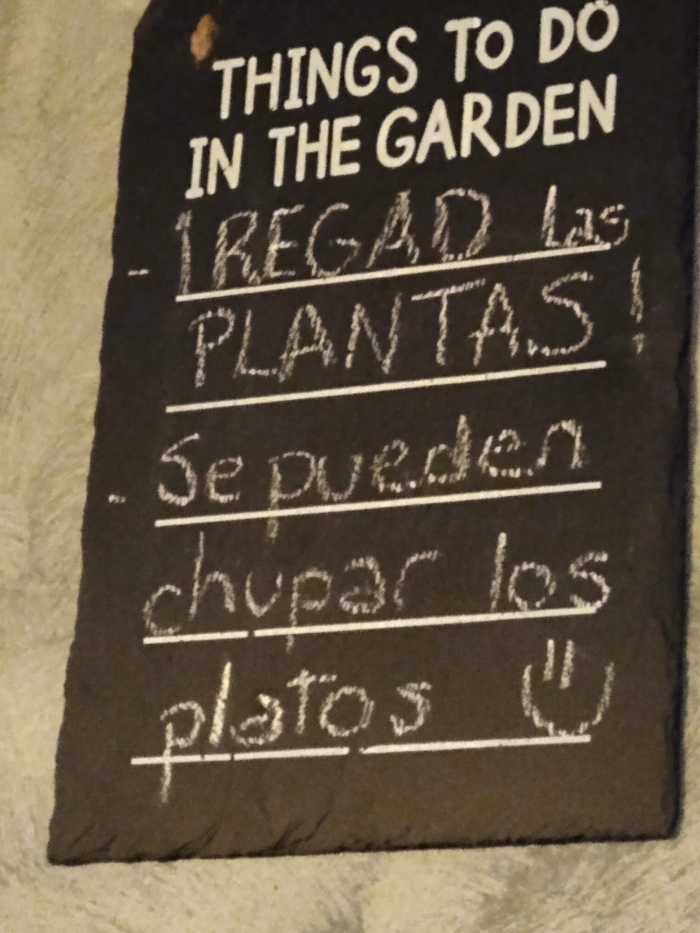 THINGS TO DO
IN THE GARDEN
- ¡REGAD Las
PLANTAS!
- Se pueden
chupar los
platos